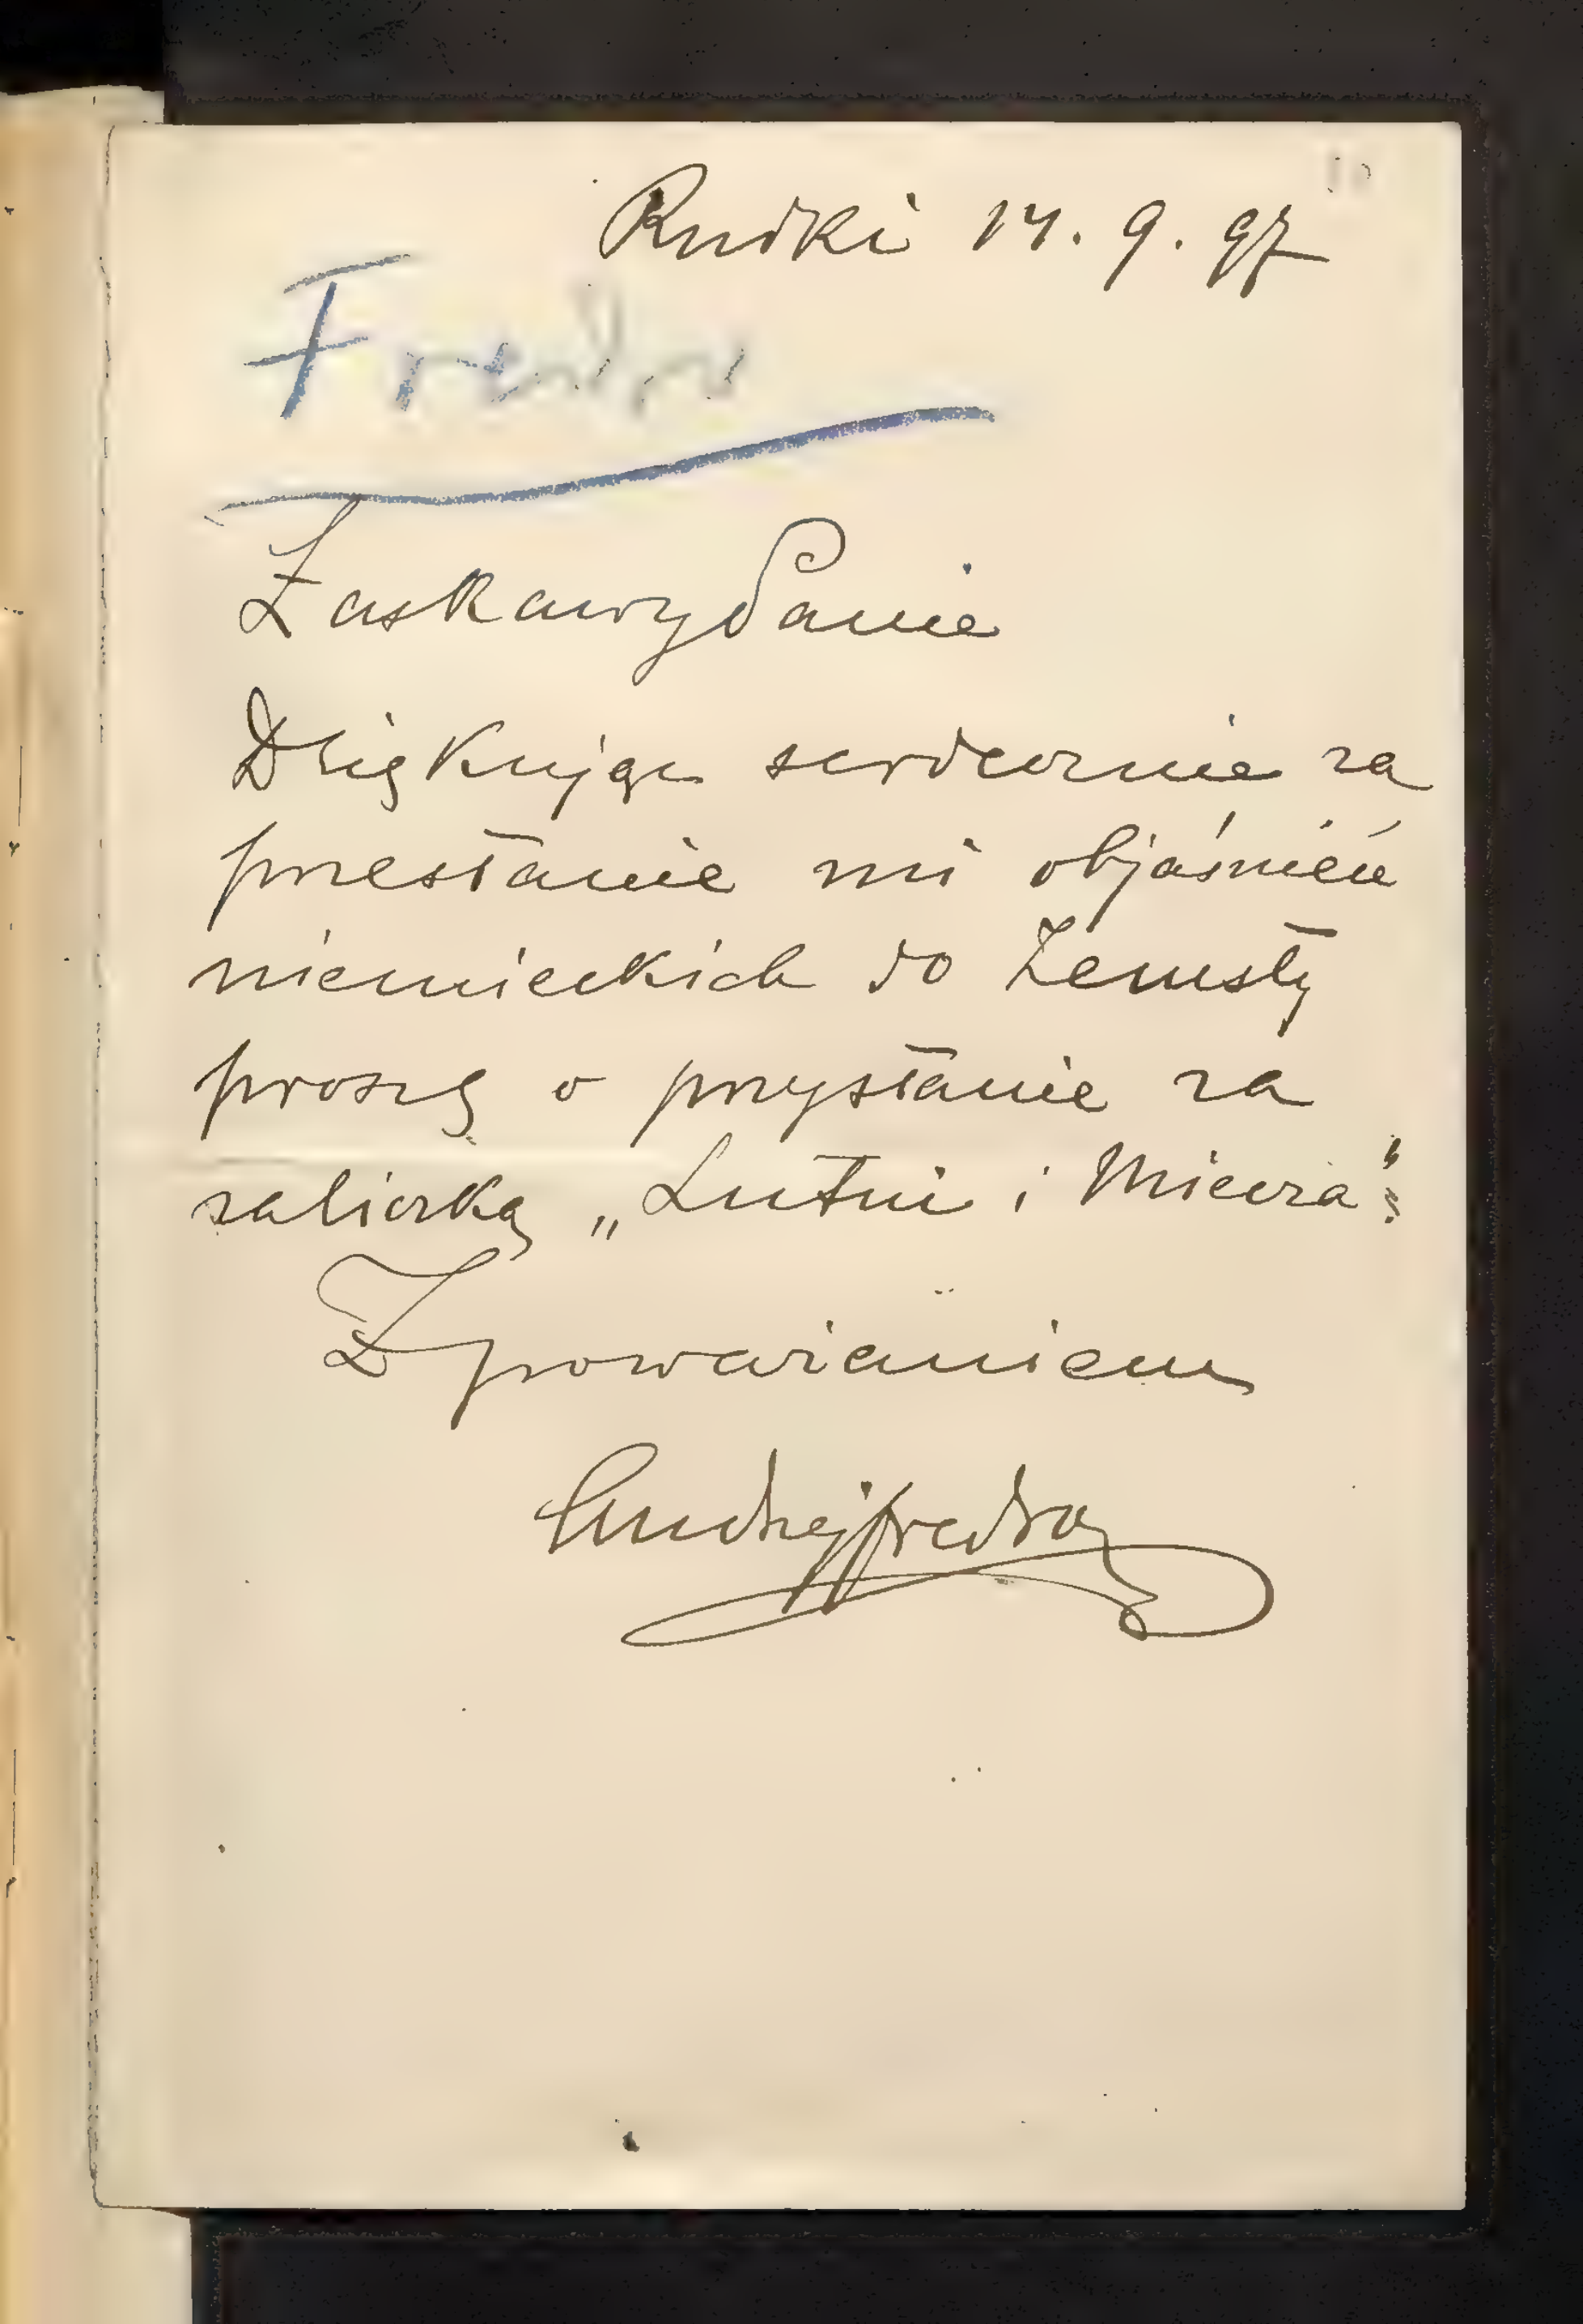 Rudki 14. 9. 97
Fredro
Łaskawy Panie
Dziękując serdecznie za
przesłanie mi objaśnień
niemieckich do Zemsty
proszę o przysłanie za
zaliczką „Lutni i Miecza”
Z poważaniem
Andrzej Fredro